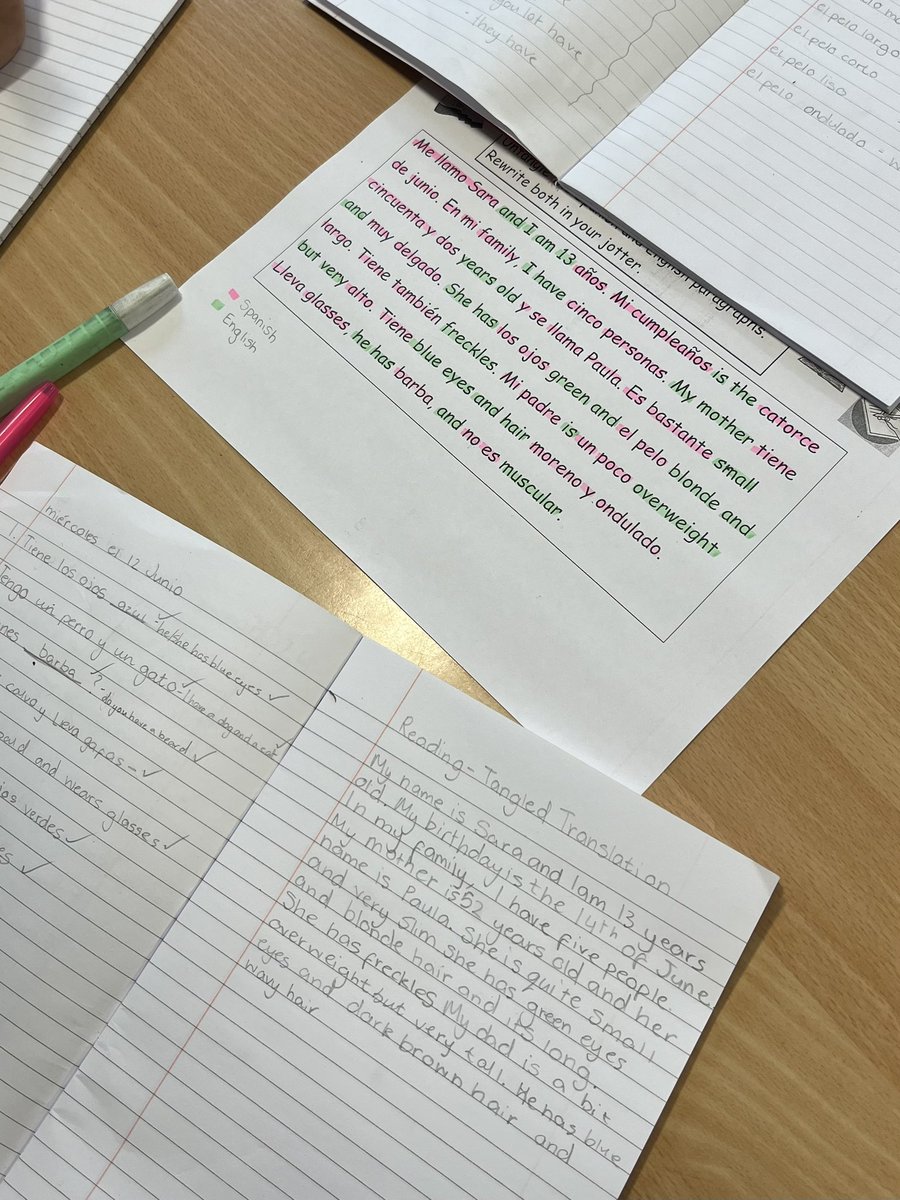 you lot have
- they have
el pelo largo
el pelo corto
el pelo liso
el pelo ondulado -
and English paragraphs.
Rewrite both in your jotter.
Me llamo Sara and I am 13 años. Mi cumpleaños is the catorce
de junio. En mi family, I have cinco personas. My mother tiene
cincuenta y dos years old y se llama Paula. Es bastante small
and muy delgado. She has los ojos green and el pelo blonde and
largo. Tiene también freckles. Mi padre is un poco overweight
but very alto. Tiene blue eyes and hair moreno y ondulado.
Lleva glasses, he has barba, and no es muscular.
Spanish
English
miércoles el 12 Junio
Tiene los ojos azul - he/she has blue eyes ✓
Tengo un perro y un gato - I have a dog and a cat ✓
barba ? - do you have a beard ✓
calva y lleva gafas - ✓
and wears glasses ✓
verdes ✓
✓
Reading - Tangled Translation
My name is Sara and I am 13 years
old. My birthday is the 14th of June.
In my family, I have five people.
My mother is 52 years old and her
name is Paula. She is quite small
and very slim she has green eyes
and blonde hair and its long.
She has freckles My dad is a bit
overweight but very tall. He has blue
eyes and dark brown hair and
wavy hair